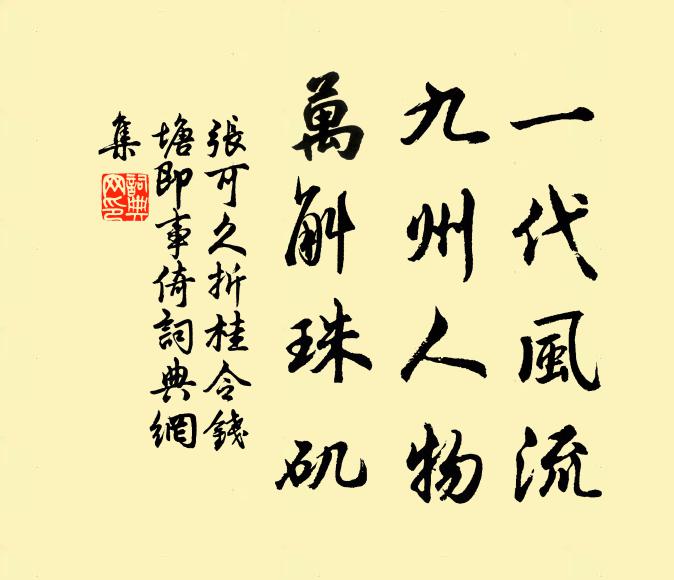 一代風流
九州人物
萬斛珠矶
張可久折桂令錢
塘即事倚詞典網
集
詞典
网印